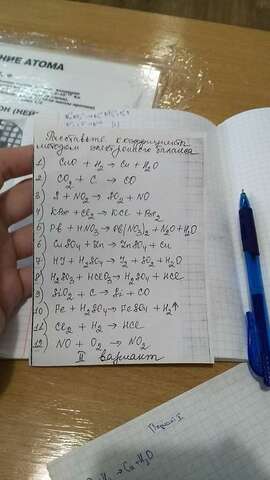 НИЕ АТОМА
Расставьте коэффициенты
методом электронного баланса
1) CuO + H₂ → Cu + H₂O
2) CO₂ + C → CO
3) S + NO₂ → SO₂ + NO
4) KBr + Cl₂ → KCl + Br₂
5) Pb + HNO₃ → Pb(NO₃)₂ + N₂O + H₂O
6) CuSO₄ + Zn → ZnSO₄ + Cu
7) HJ + H₂SO₄ → J₂ + SO₂ + H₂O
8) H₂SO₃ + HClO₃ → H₂SO₄ + HCl
9) SiO₂ + C → Si + CO
10) Fe + H₂SO₄ → FeSO₄ + H₂↑
11) Cl₂ + H₂ → HCl
12) NO + O₂ → NO₂
II вариант
Вариант I